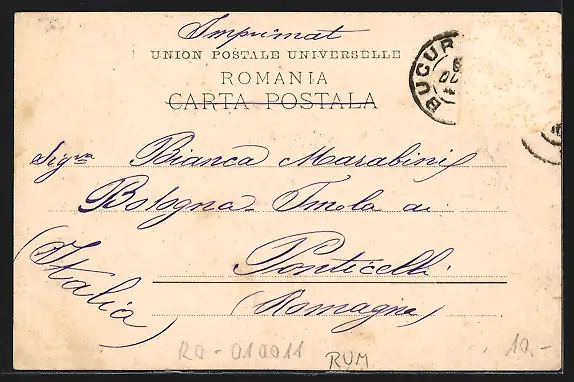 Imprimat
UNION POSTALE UNIVERSELLE
ROMÂNIA
CARTA POSTALA
BUCUR
Sigra Bianca Marabini
Bologna - Imola
Ponticelli
(Romagna)
(Italia)
RO-010011
RUM
10.-